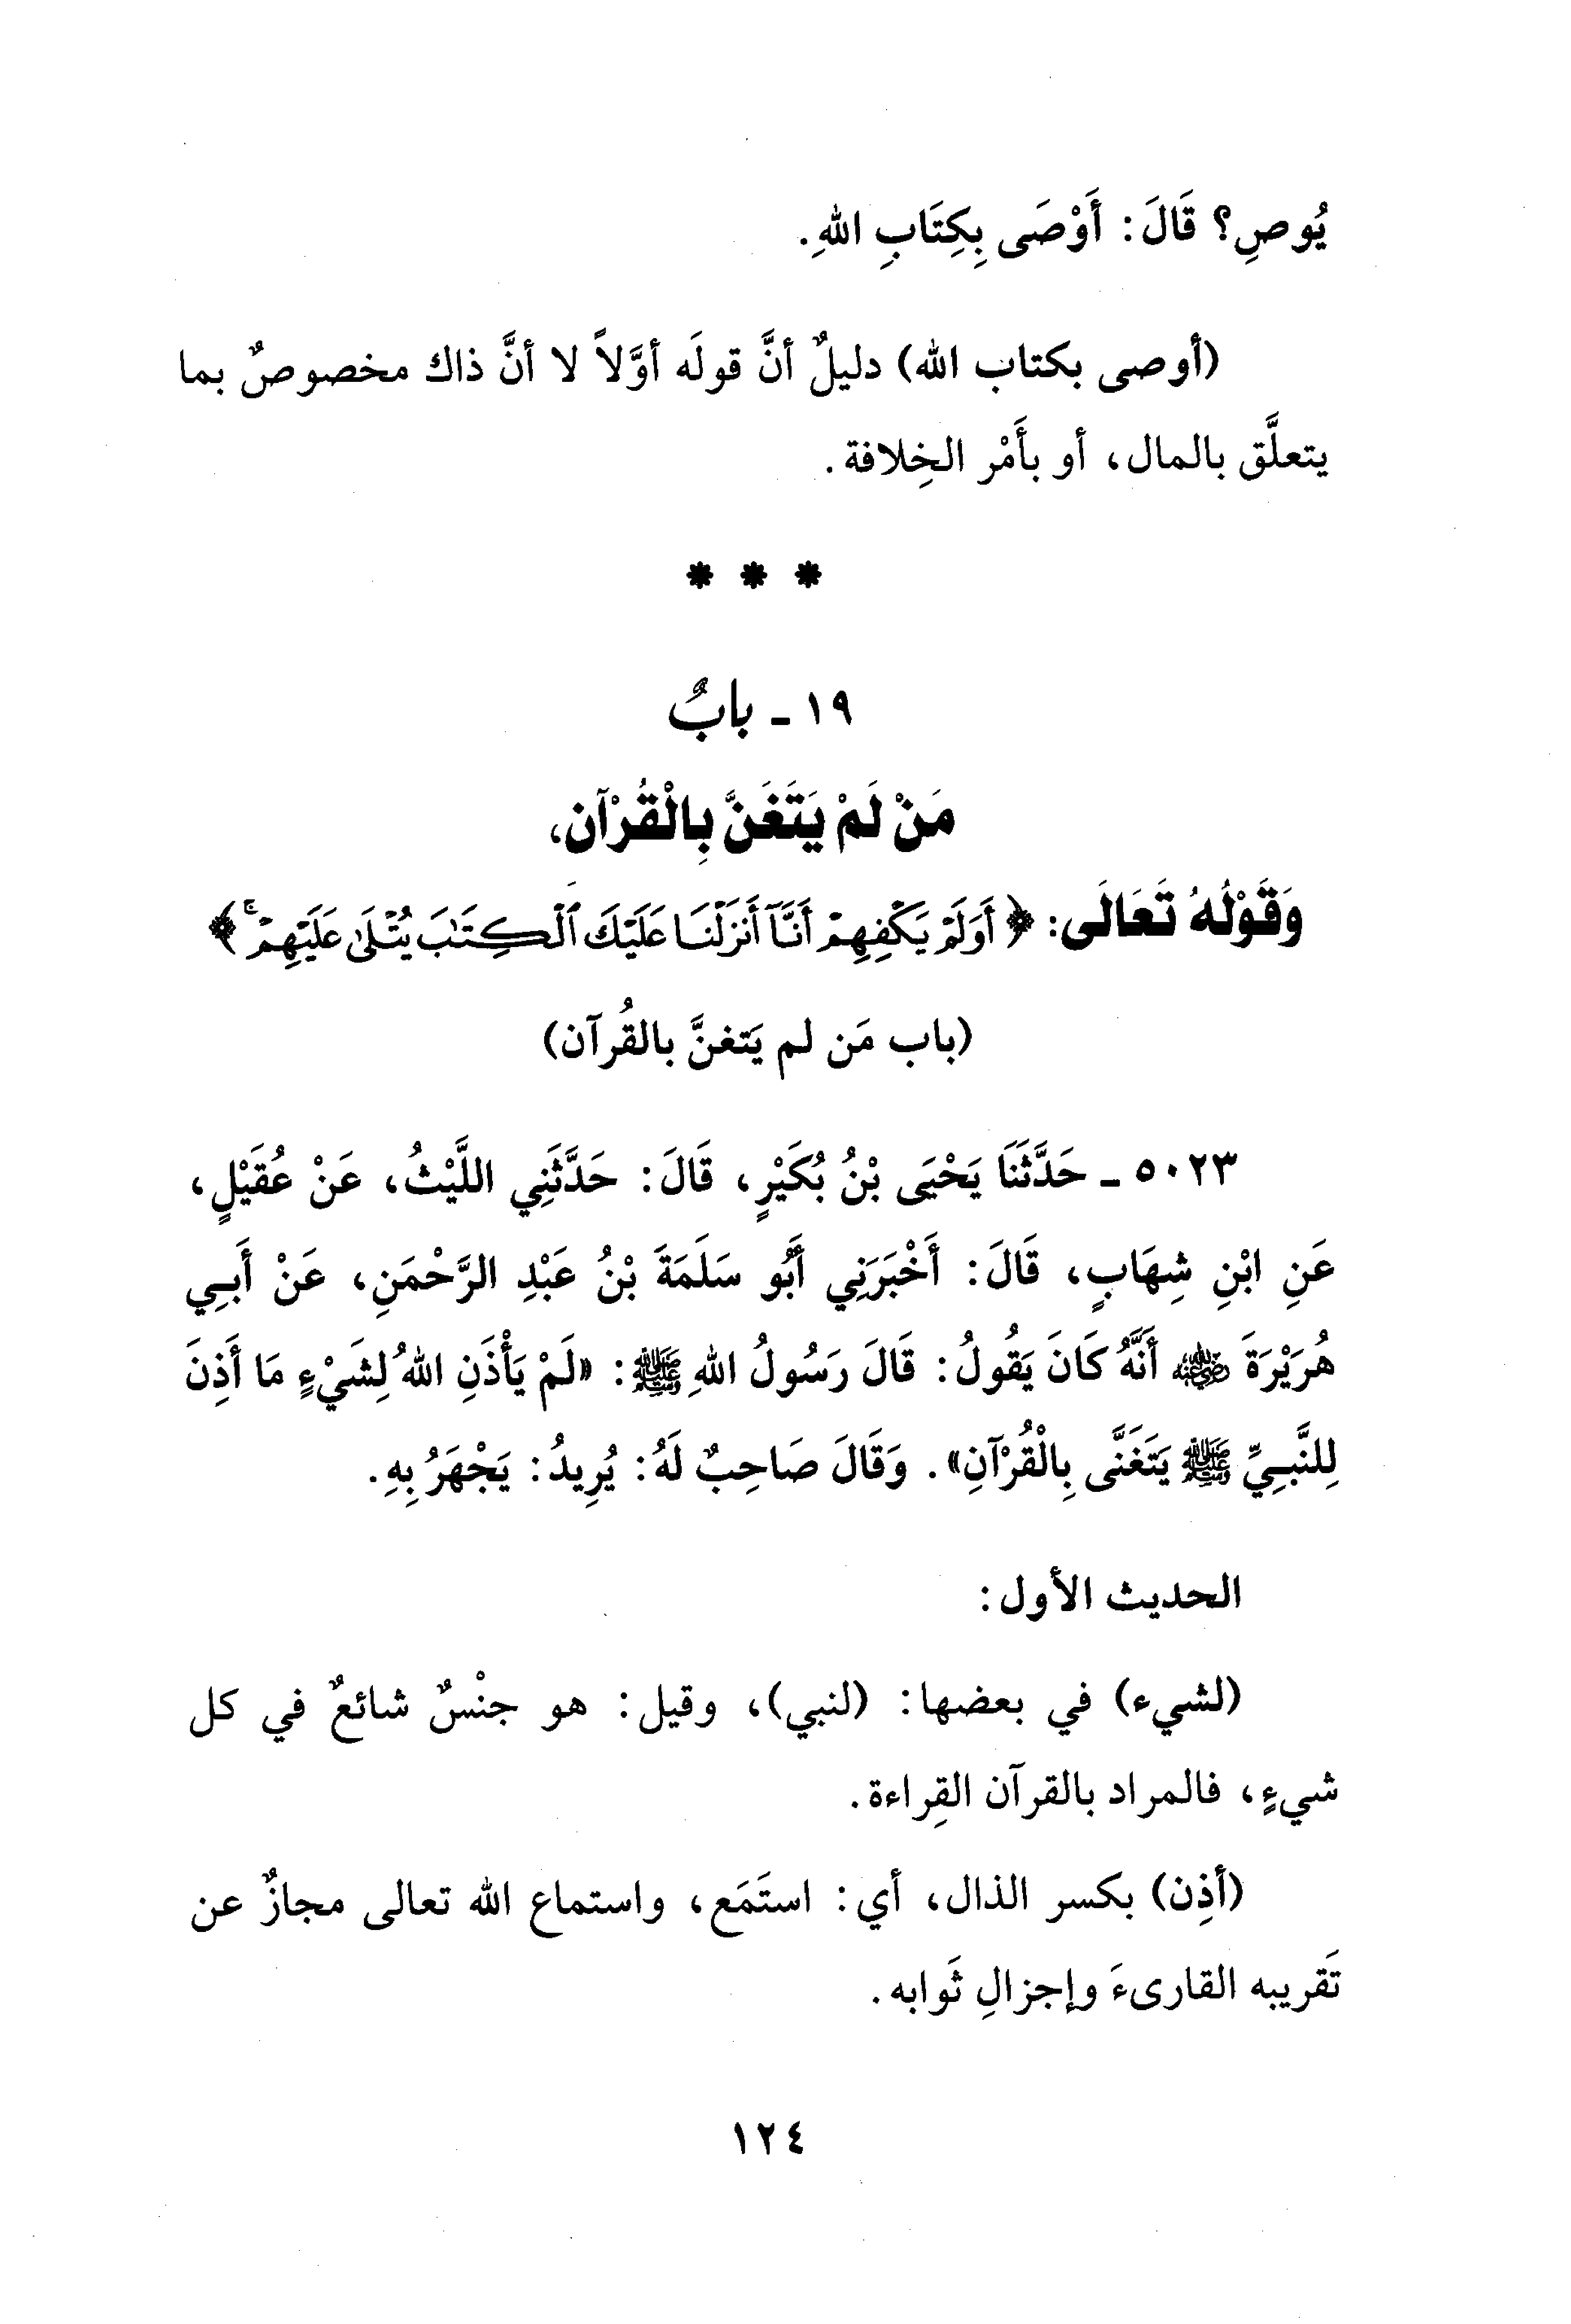 يُوصِ؟ قَالَ: أَوْصَى بِكِتَابِ اللهِ.
(أوصى بكتاب الله) دليلٌ أنَّ قولَه أوَّلاً لا أنَّ ذاك مخصوصٌ بما
يتعلَّق بالمال، أو بأَمْر الخِلافة.
* * *
١٩ - بابٌ
مَنْ لَمْ يَتَغَنَّ بِالْقُرْآن،
وَقَوْلُهُ تَعَالَى: ﴿أَوَلَمْ يَكْفِهِمْ أَنَّآ أَنزَلْنَا عَلَيْكَ ٱلْكِتَٰبَ يُتْلَىٰ عَلَيْهِمْ ۚ﴾
(باب مَن لم يَتغنَّ بالقُرآن)
٥٠٢٣ - حَدَّثَنَا يَحْيَى بْنُ بُكَيْرٍ، قَالَ: حَدَّثَنِي اللَّيْثُ، عَنْ عُقَيْلٍ،
عَنِ ابْنِ شِهَابٍ، قَالَ: أَخْبَرَنِي أَبُو سَلَمَةَ بْنُ عَبْدِ الرَّحْمَنِ، عَنْ أَبِي
هُرَيْرَةَ رضي الله عنه أَنَّهُ كَانَ يَقُولُ: قَالَ رَسُولُ اللهِ ﷺ: «لَمْ يَأْذَنِ اللهُ لِشَيْءٍ مَا أَذِنَ
لِلنَّبِيِّ ﷺ يَتَغَنَّى بِالْقُرْآنِ». وَقَالَ صَاحِبٌ لَهُ: يُرِيدُ: يَجْهَرُ بِهِ.
الحديث الأول:
(لشيء) في بعضها: (لنبي)، وقيل: هو جنْسٌ شائعٌ في كل
شيءٍ، فالمراد بالقرآن القِراءة.
(أذِن) بكسر الذال، أي: استَمَع، واستماع الله تعالى مجازٌ عن
تَقريبه القارىءَ وإجزالِ ثَوابه.
١٢٤